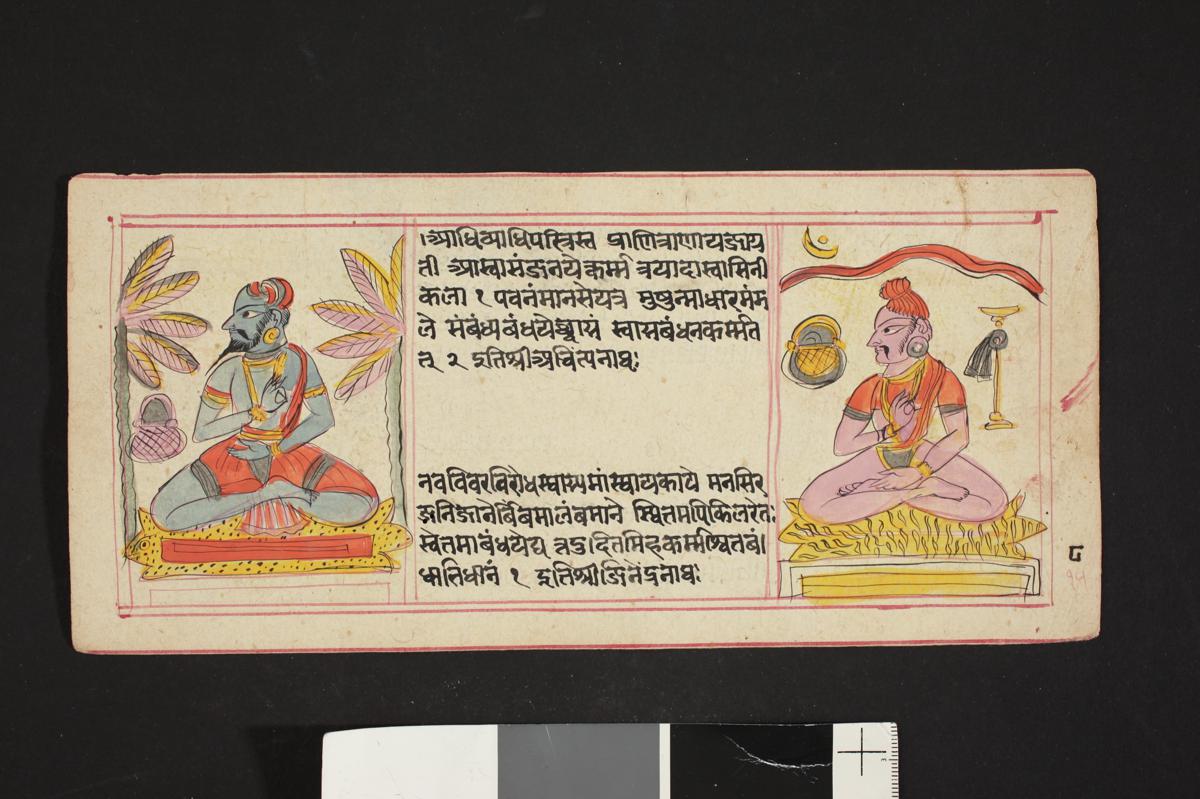 ।आधिआधिपस्विस्व प्राणित्राणायज्ञाय
ती आस्वासंजनयेकर्म्म त्रयादास्वासिनी
कला १ पवनंमानसेयत्र सुषुन्माधारमंम
ले संबंध्यबंधयेद्वायं स्वासबंधनकर्म्मत
त् २ इतिश्रीअचिंत्यनाथः
नवविवरविरोधस्वास्यमांस्वायकाये मनसिर
जनिजानेर्बिंबमालंबमाने स्थितमपिकिलरेतः
स्वेतमाबंधयेद्य त्रउदितमिहकर्म्मश्वितबं।
धातिधीनं १ इतिश्रीजिनेंद्रनाथः
८
१५